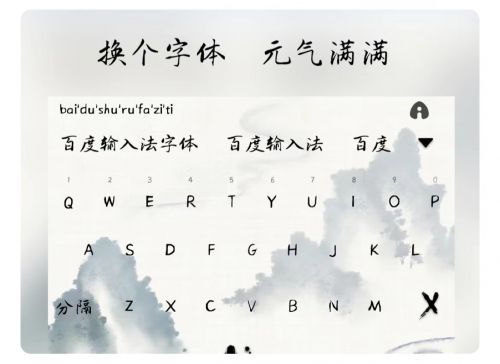 换个字体 元气满满
bai'du'shu'ru'fa'zi'ti
百度输入法字体 百度输入法 百度
1 2 3 4 5 6 7 8 9 0
Q W E R T Y U I O P
A S D F G H J K L
分隔 Z X C V B N M X